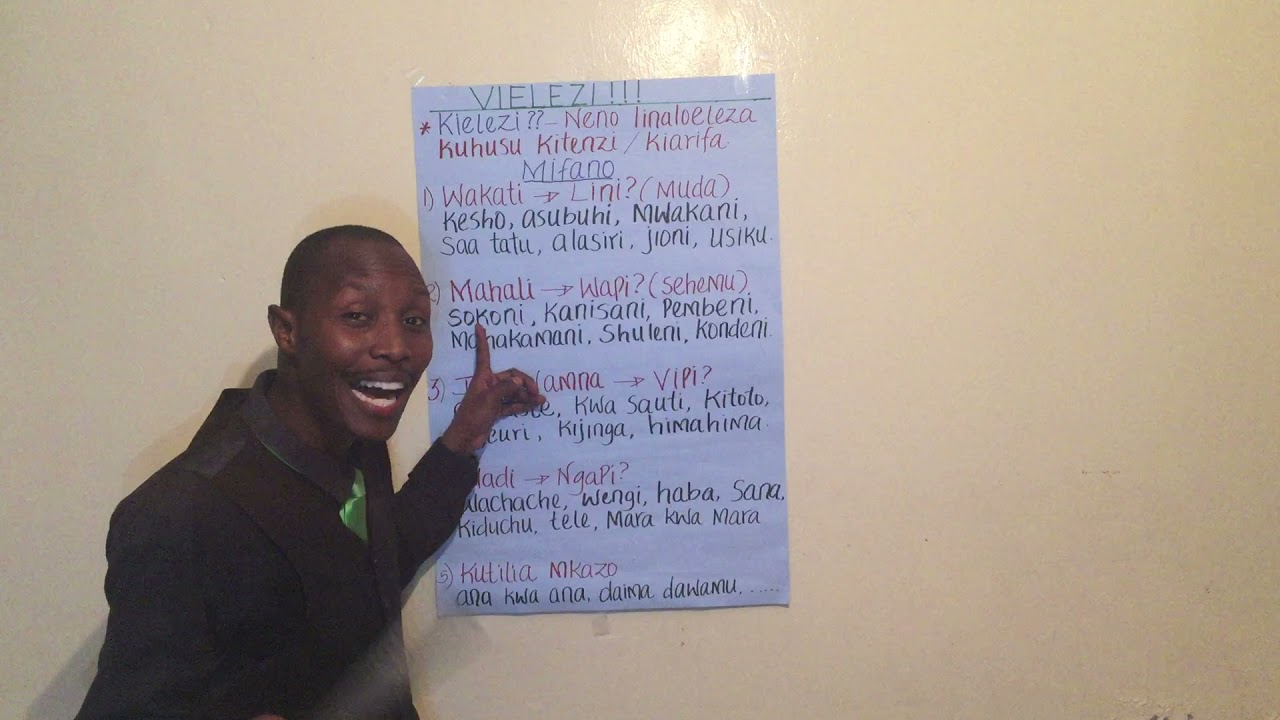 VIELEZI!!!
* Kielezi??- Neno linaloeleza
kuhusu kitenzi / kiarifa
Mifano
1) Wakati → Lini? (Muda)
kesho, asubuhi, Mwakani,
Saa tatu, alasiri, jioni, usiku.
Mahali → Wapi? (sehemu)
sokoni, kanisani, pembeni,
Mahakamani, Shuleni, kondeni.
3) → Vipi?
kwa sauti, kitoto,
kijinga, himahima.
→ Ngapi?
wengi, haba, sana,
kiduchu, tele, Mara kwa Mara
5) Kutilia Mkazo
ana kwa ana, daima dawamu, .....